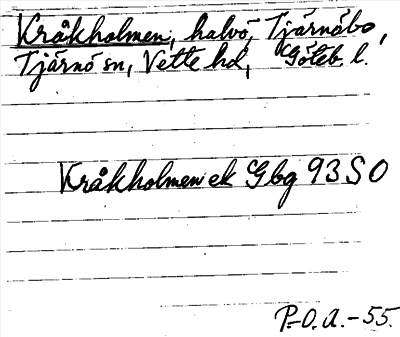 Kråkholmen, halvö, Tjärnöbo,
Tjärnö sn, Vette hd, Göteb. l.
Kråkholmen ek Gbg 93 SO
P.-O.A.-55.